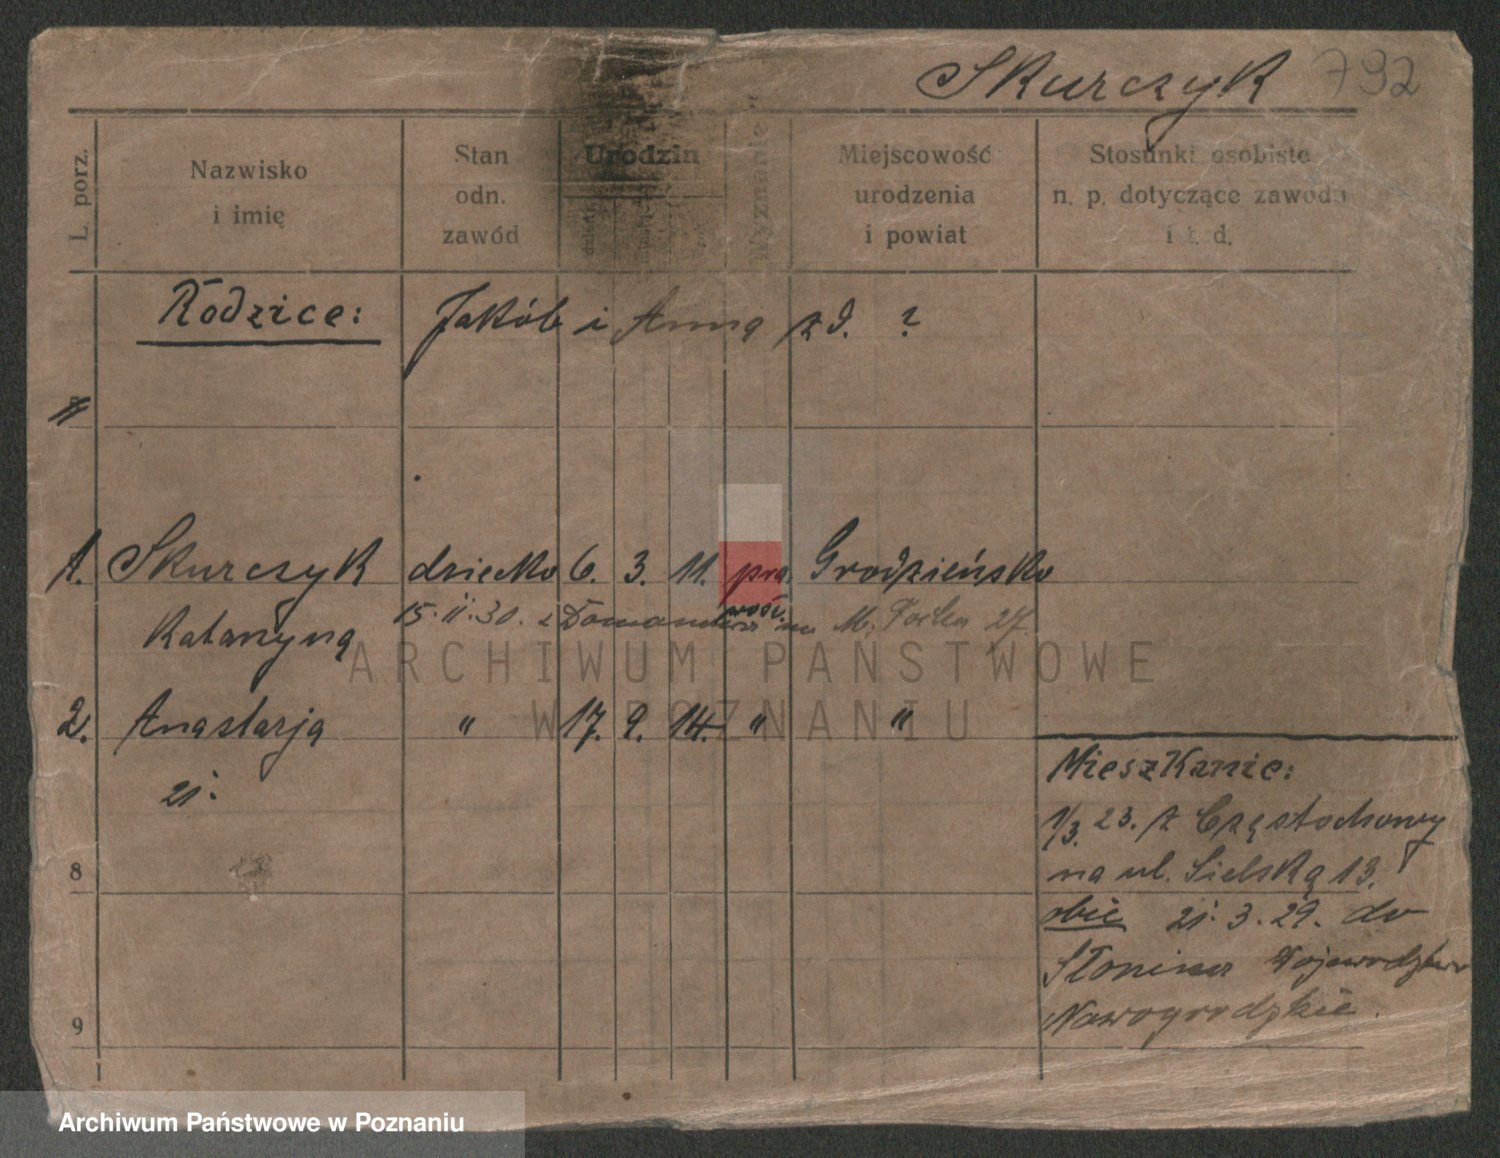 Skurczyk 792
L. porz.
Nazwisko
i imię
Stan
odn.
zawód
Urodzin
Wyznanie
Miejscowość
urodzenia
i powiat
Stosunki osobiste
n. p. dotyczące zawodu
i t. d.
Rodzice: Jakób i Anna z d. ?
1. Skurczyk dziecko 6. 3. 11. pra Grodzieńsko
wosł.
Katarzyna 15.II.30. z M. 27
2. Anastazja " 17. 9. 14. " "
Mieszkanie:
1/3. 23. z Częstochowy
na ul. Sielską 13.
8
obie 21. 3. 29. do
Słonima Województwo
Nowogrodzkie.
9
ARCHIWUM PAŃSTWOWE
W POZNANIU
Archiwum Państwowe w Poznaniu